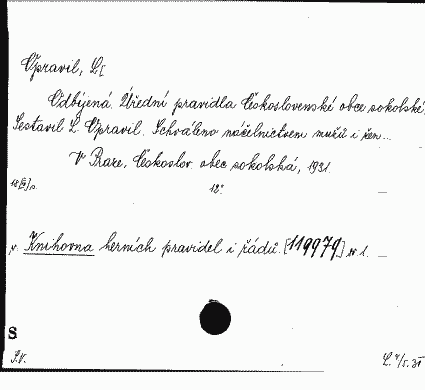 Upravil, L[
Odbíjená. Úřední pravidla Československé obce sokolské.
Sestavil L. Upravil. Schváleno náčelnictvem mužů i žen...
V Praze, Českoslov. obec sokolská, 1931.
18[II] s. 12°. —
v. Knihovna herních pravidel i řádů. [119979] sv 1. —
S
S.V. L. 4/5. 31